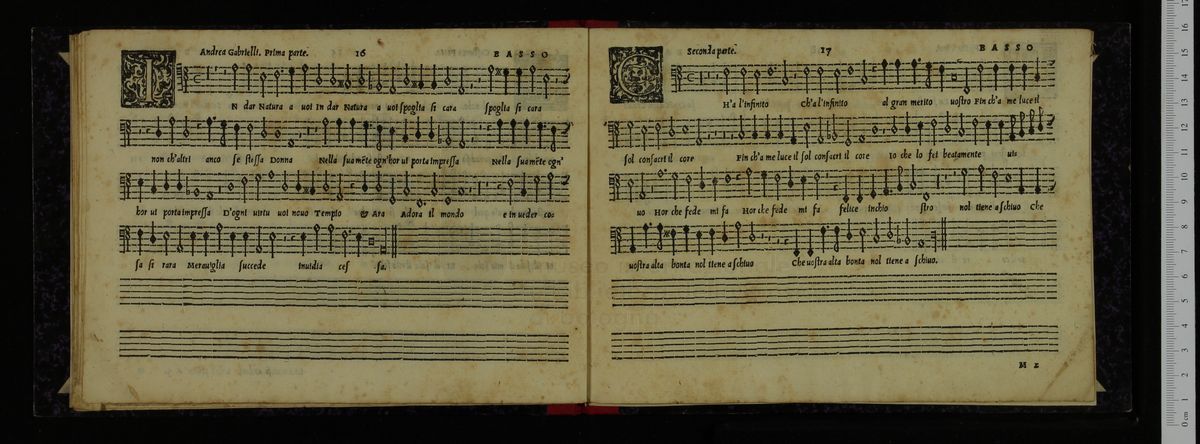 Andrea Gabrielli. Prima parte. 16 BASSO
IN dar Natura a voi In dar Natura a voi spoglia si cara spoglia si cara
non ch'altri anco se stessa Donna Nella sua mẽte ogn'hor vi porta impressa Nella sua mẽte ogn'
hor vi porta impressa D'ogni virtu voi nouo Tempio & Ara Adora il mondo e in veder co=
sa si rara Merauiglia succede inuidia ces sa.
Seconda parte. 17 BASSO
CH'a l'infinito Ch'a l'infinito al gran merito vostro Fin ch'a me luce il
sol consacri il core Fin ch'a me luce il sol consacri il core Io che lo fei beatamente vis
uo Hor che fede mi fa Hor che fede mi fa felice inchio stro nol tiene a schiuo Che
vostra alta bonta nol tiene a schiuo Che vostra alta bonta nol tiene a schiuo.
M E